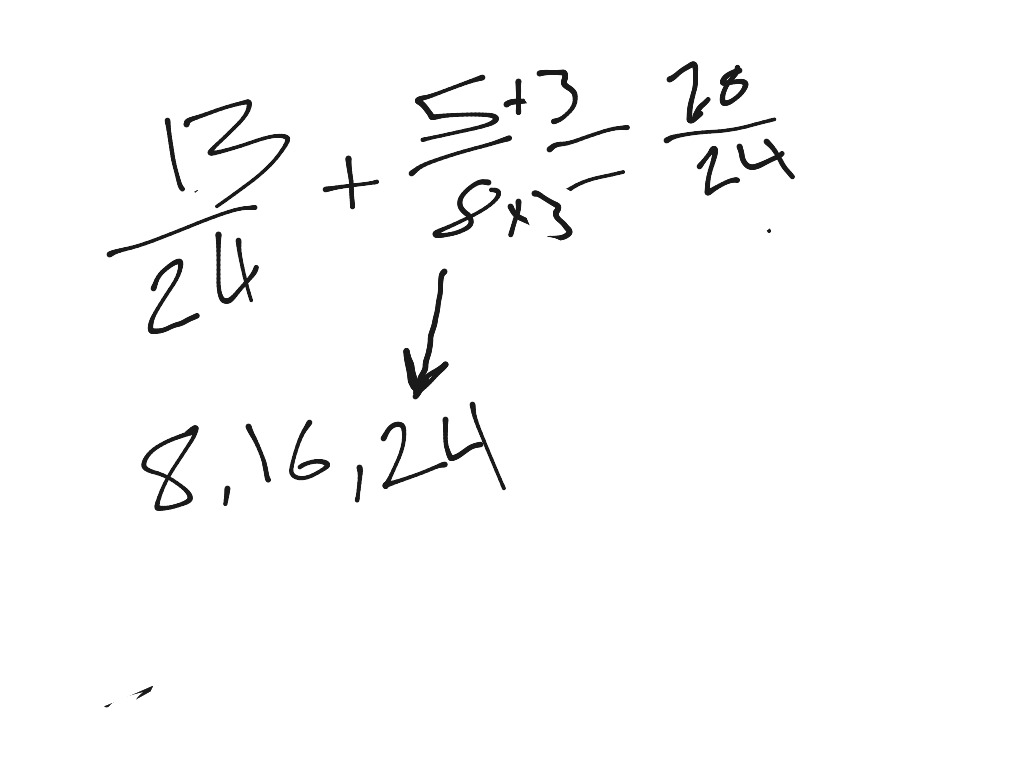 13/24 + 5+3/8×3 = 28/24
8, 16, 24